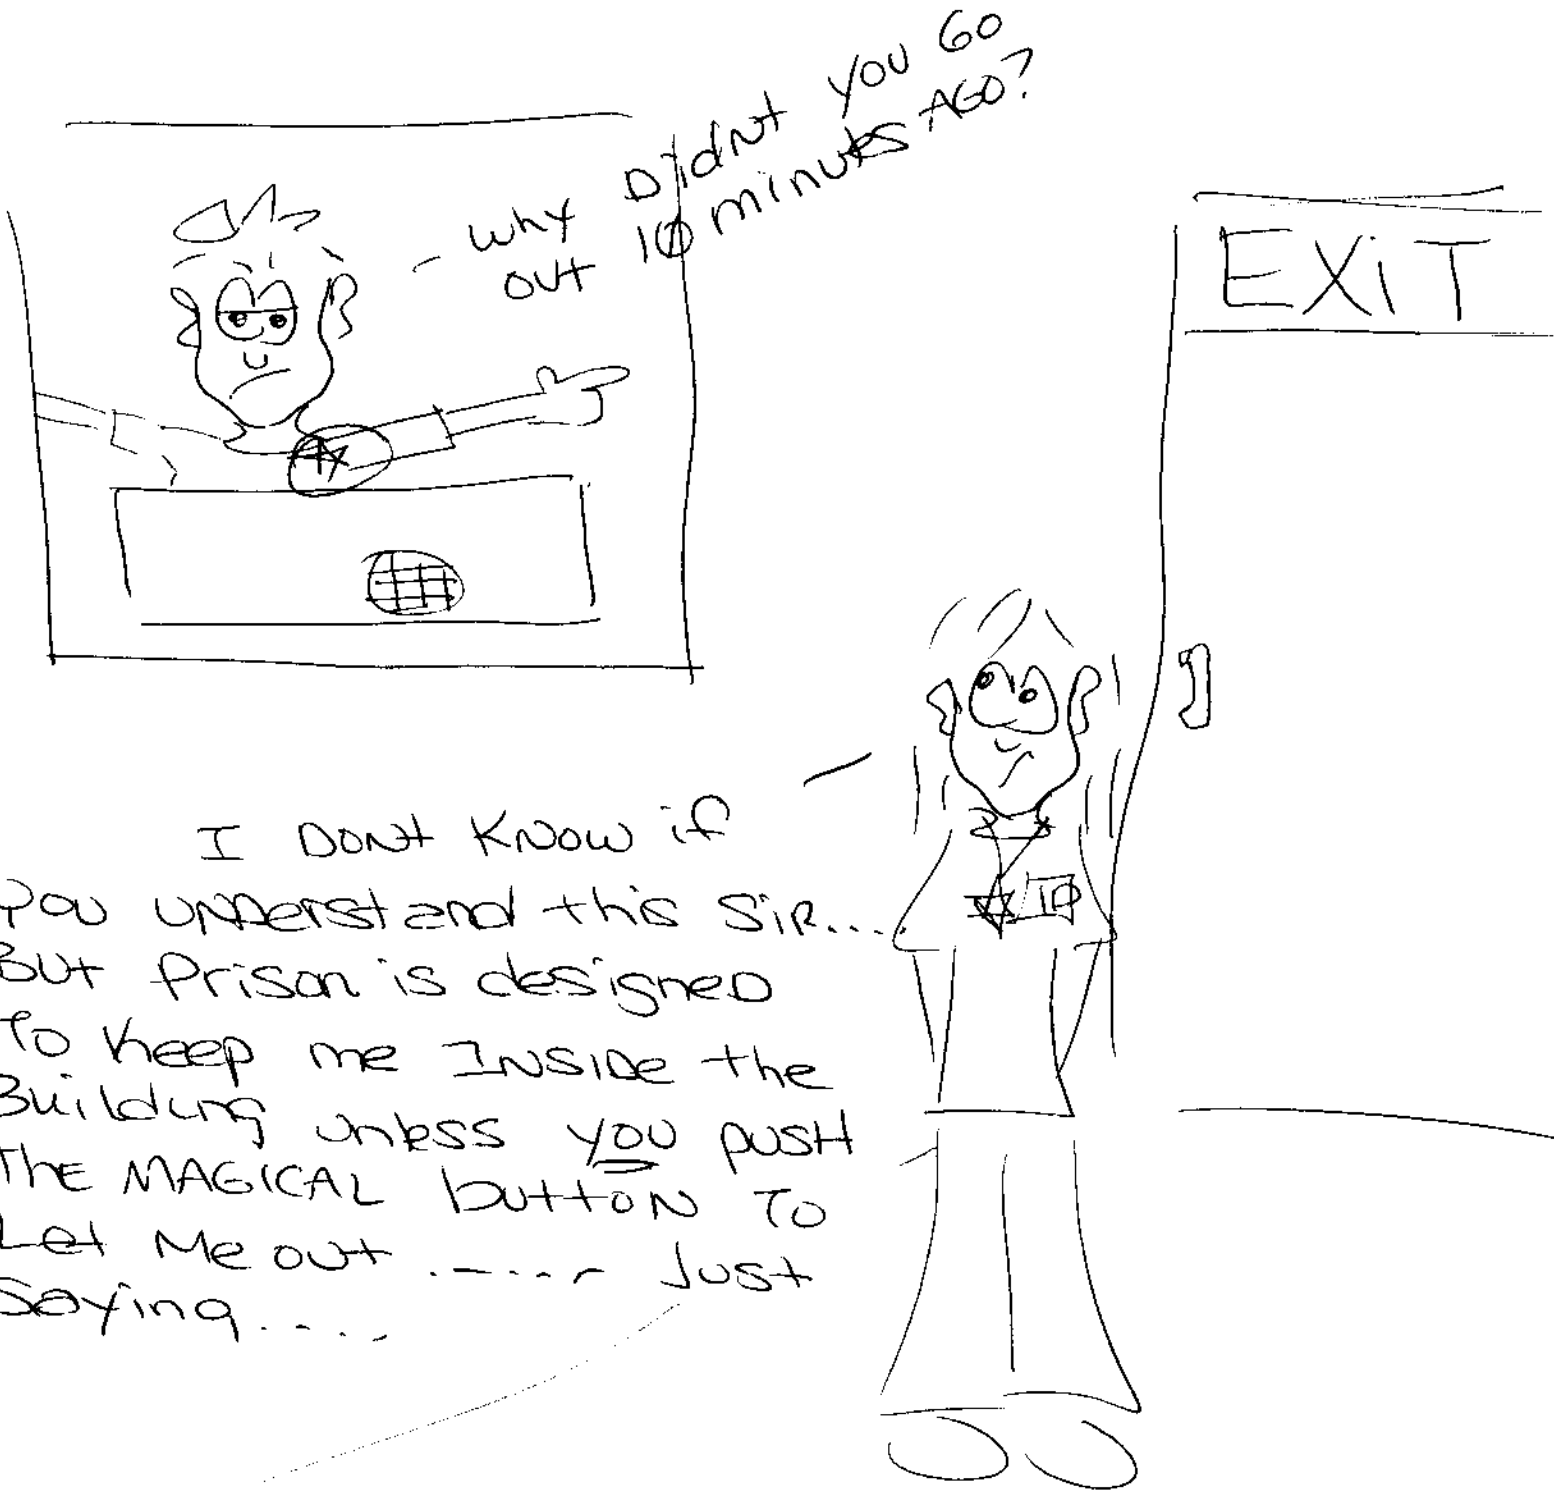 Why Didnt you Go
out 10 minutes AGO?
EXiT
I DONt KNOW if
you understand this SiR....
But Prison is designeD
To Keep me INSIDe the
Building unless you pusH
The MAGICAL buttoN To
Let Me out ....... Just
Saying....
ID